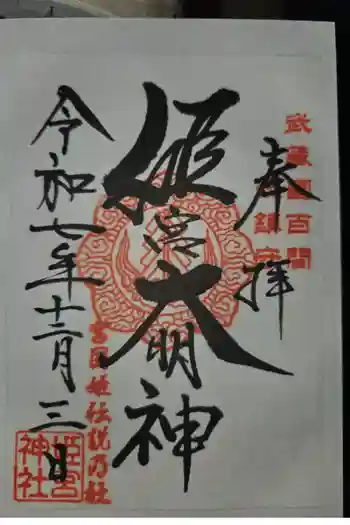 奉拝
武蔵國百間
鎮守
姫宮大明神
宮目姫伝説乃社
令和七年十二月三日
姫宮
神社